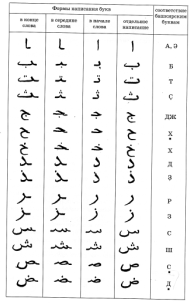 Формы написания букв
соответствие башкирским буквам
в конце слова
в середине слова
в начале слова
отдельное написание
ـا ـا ا ا А, Э
ـب ـبـ بـ ب Б
ـت ـتـ تـ ت Т
ـث ـثـ ثـ ث С
ـج ـجـ جـ ج ДЖ
ـح ـحـ حـ ح Х
ـخ ـخـ خـ خ Х
ـد ـد د د Д
ـذ ـذ ذ ذ З
ـر ـر ر ر Р
ـز ـز ز ز З
ـس ـسـ سـ س С
ـش ـشـ شـ ش Ш
ـص ـصـ صـ ص С
ـض ـضـ ضـ ض Д